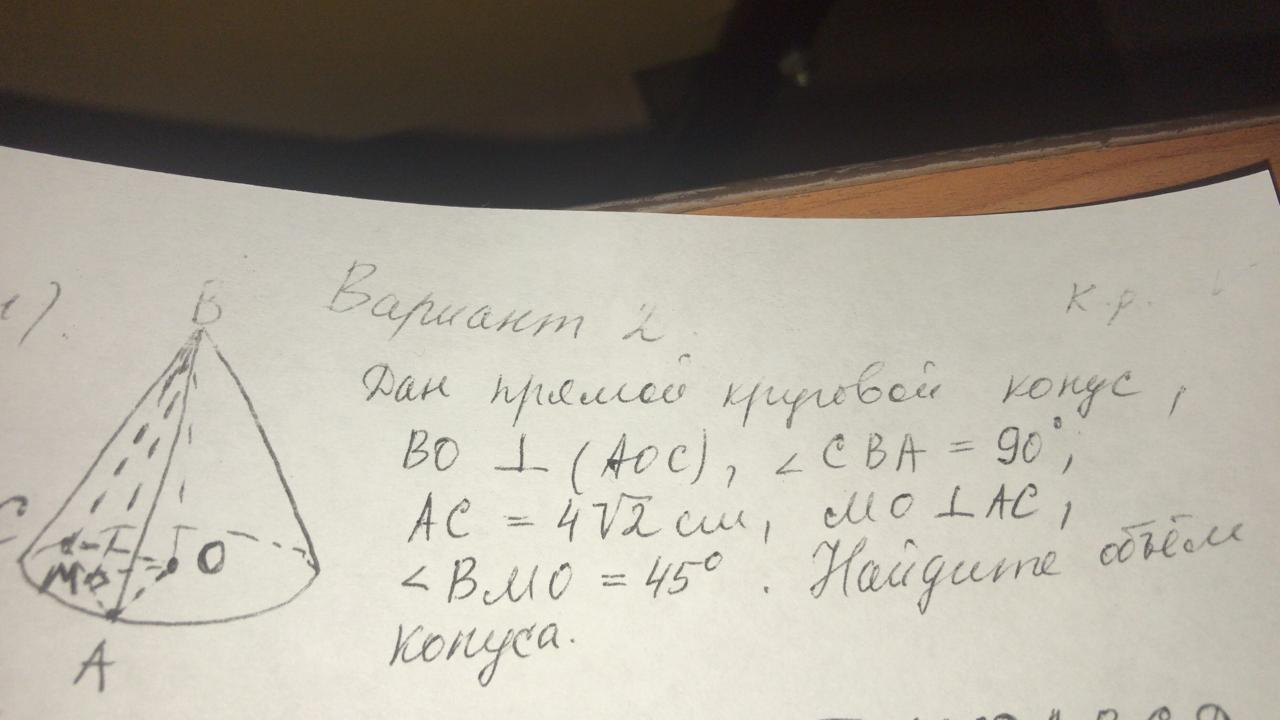 Вариант 2. к.р.
B
Дан прямой круговой конус,
BO ⊥ (AOC), ∠CBA = 90°,
AC = 4√2 см, MO ⊥ AC,
C
M O
∠BMO = 45°. Найдите объём
конуса.
A